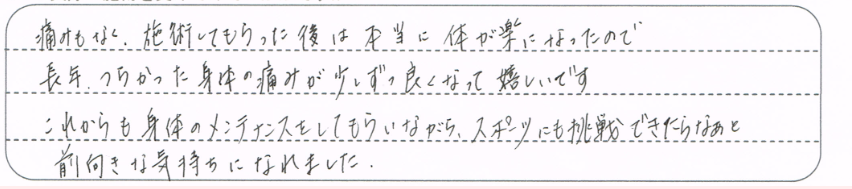 痛みもなく、施術してもらった後は本当に体が楽になったので
長年、つらかった身体の痛みが少しずつ良くなって嬉しいです
これからも身体のメンテナンスをしてもらいながら、スポーツにも挑戦できたらなぁと
前向きな気持ちになれました.